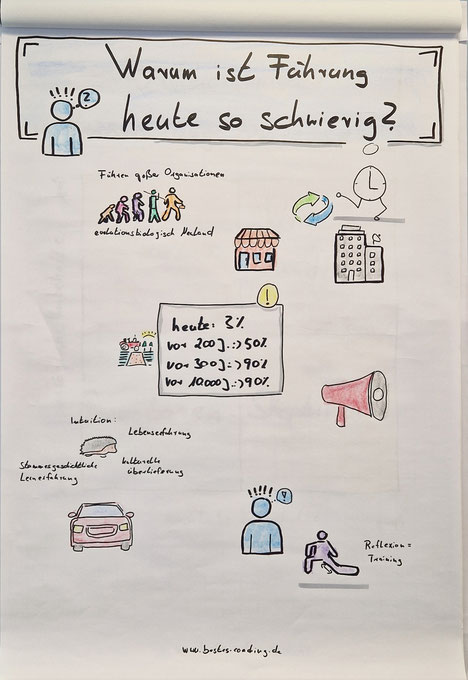 Warum ist Führung
heute so schwierig?
Führen großer Organisationen
evolutionsbiologisch Neuland
heute: 3%
vor 200 J. => 50%
vor 300 J => 90%
vor 10.000 J => 90%
Intuition:
Lebenserfahrung
Stammesgeschichtliche
Lernerfahrung
kulturelle
Überlieferung
Reflexion =
Training